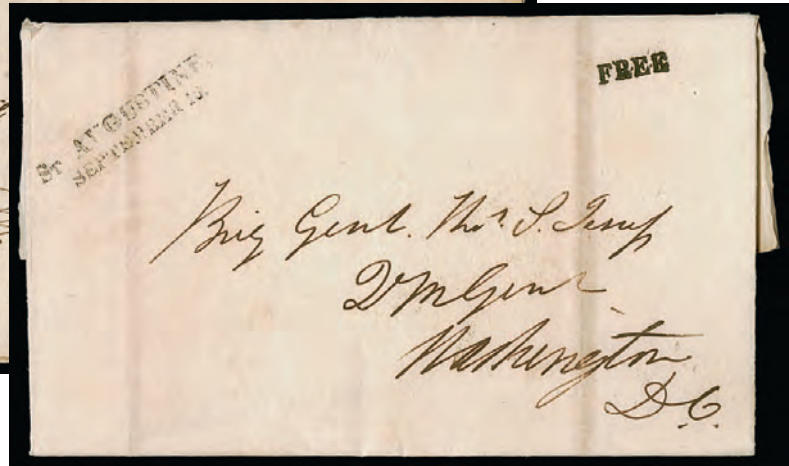 St. AUGUSTINE,
SEPTEMBER
FREE
Brig Genl. Thos. S. Jesup
Q M Genl
Washington
D.C.